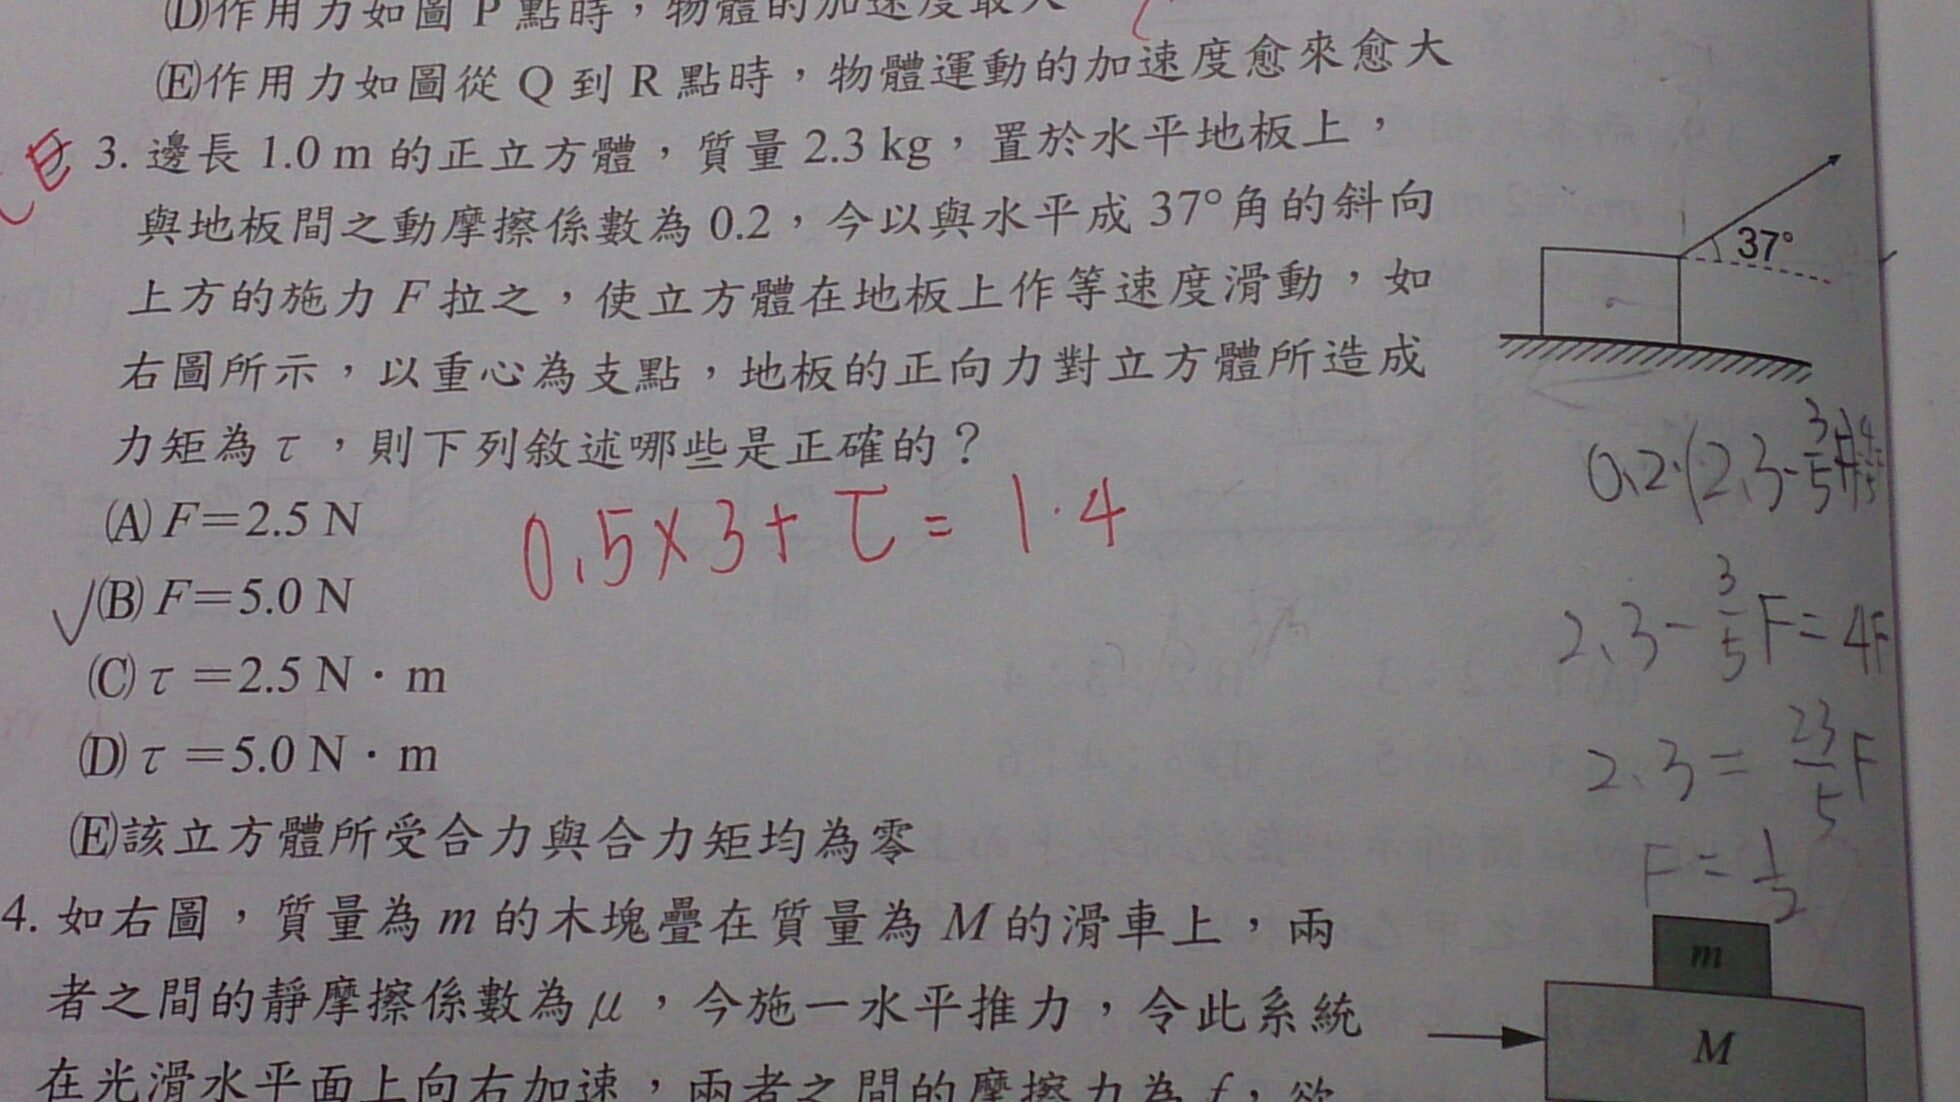 (D)作用力如圖 P 點時，物體的加速度最大
(E)作用力如圖從 Q 到 R 點時，物體運動的加速度愈來愈大
3. 邊長 1.0 m 的正立方體，質量 2.3 kg，置於水平地板上，
與地板間之動摩擦係數為 0.2，今以與水平成 37°角的斜向
上方的施力 F 拉之，使立方體在地板上作等速度滑動，如
右圖所示，以重心為支點，地板的正向力對立方體所造成
力矩為 τ，則下列敘述哪些是正確的？
(A) F=2.5 N
(B) F=5.0 N
(C) τ=2.5 N·m
(D) τ=5.0 N·m
(E)該立方體所受合力與合力矩均為零
0.5×3+τ=1.4
37°
2.3-3/5F=4F
2.3=23/5F
F=1/2
4. 如右圖，質量為 m 的木塊疊在質量為 M 的滑車上，兩
者之間的靜摩擦係數為 μ，今施一水平推力，令此系統
在光滑水平面上向右加速，兩者之間的摩擦力為 f，欲
m
M